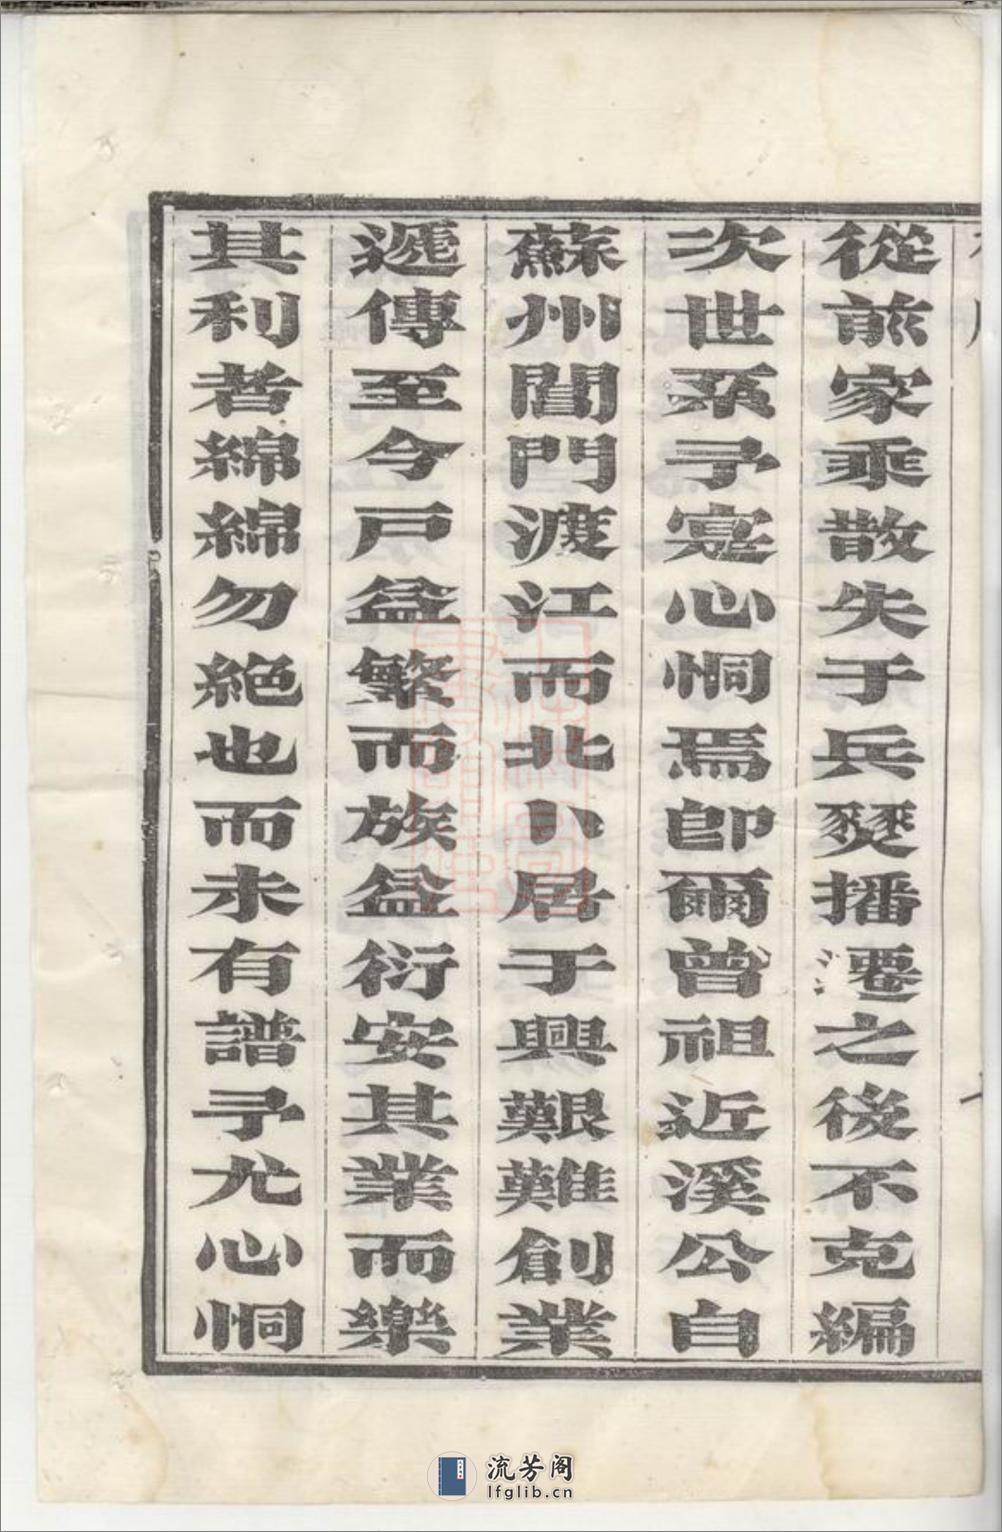 從前家乘散失于兵燹播遷之後不克編
次世系予寔心恫焉即爾曾祖近溪公自
蘇州閶門渡江而北卜居于興艱難創業
遞傳至今戸益繁而族益衍安其業而樂
其利者綿綿勿絕也而未有譜予尤心恫
流芳阁
lfglib.cn